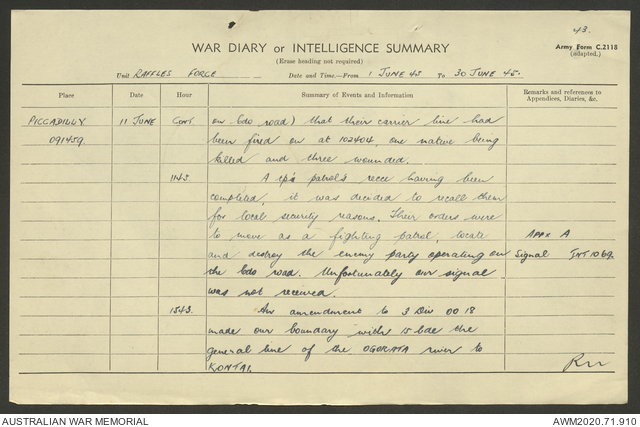 43.
WAR DIARY or INTELLIGENCE SUMMARY
Army Form C.2118
(adapted.)
(Erase heading not required)
Unit RAFFLES FORCE Date and Time—From 1 JUNE 45 To 30 JUNE 45.
Place Date Hour Summary of Events and Information Remarks and references to Appendices, Diaries, &c.
PICCADILLY 11 JUNE CONT on bdo road) that their carrier line had
091459 been fired on at 102404, one native being
killed and three wounded.
1145. A patrol's recce having been
completed, it was decided to recall them
for local security reasons. Their orders were
to move as a fighting patrol, locate APPX A
and destroy the enemy party operating on Signal INT 1069
the bdo road. Unfortunately our signal
was not received.
1543. An amendment to 3 Div OO 18
made our boundary with 15 bde the
general line of the OGORATA river to
KONTAI.
AUSTRALIAN WAR MEMORIAL AWM2020.71.910